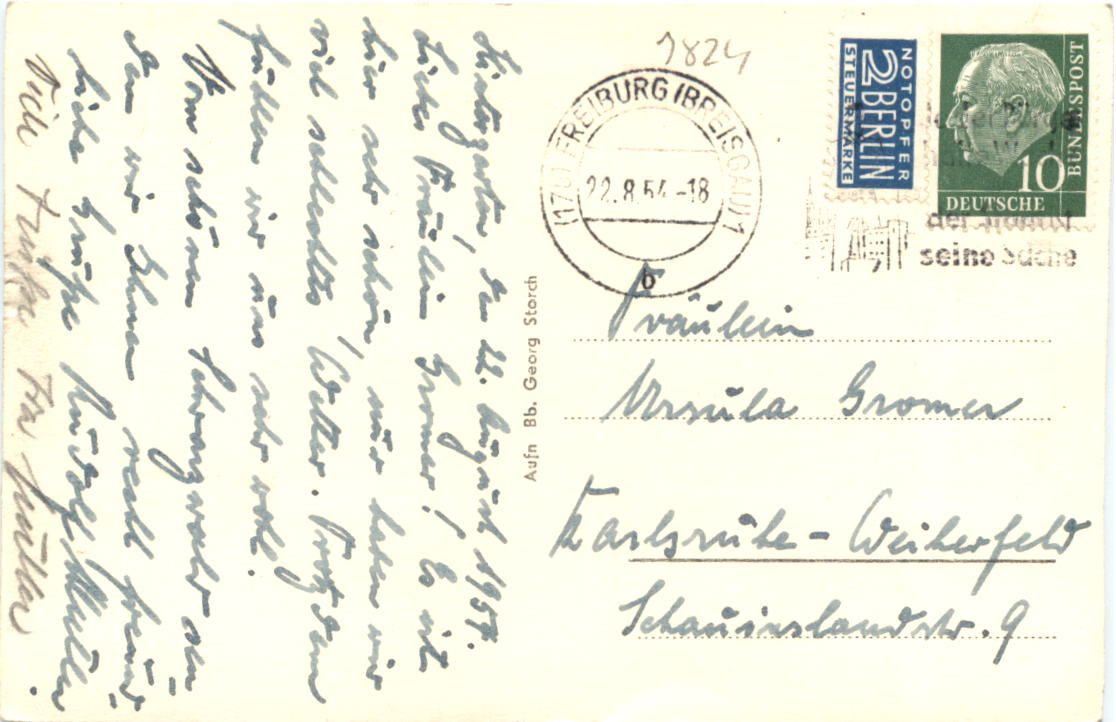 Hinterzarten, den 22. August 1954.
Liebes Fräulein Gromer! Es ist
hier sehr schön, nur haben wir
viel schlechtes Wetter. Trotzdem
fühlen wir uns sehr wohl.
Vom schönen Schwarzwald sen-
den wir Ihnen recht freund-
liche Grüße Rudolf Müller.
Viele Müller
Aufn Bb. Georg Storch
7824
FREIBURG (BREISGAU) 1
22.8.54-18
b
NOTOPFER
2 BERLIN
STEUERMARKE
10
DEUTSCHE
BUNDESPOST
der
seine Sache
Fräulein
Ursula Gromer
Karlsruhe-Weiherfeld
Schauinslandstr. 9